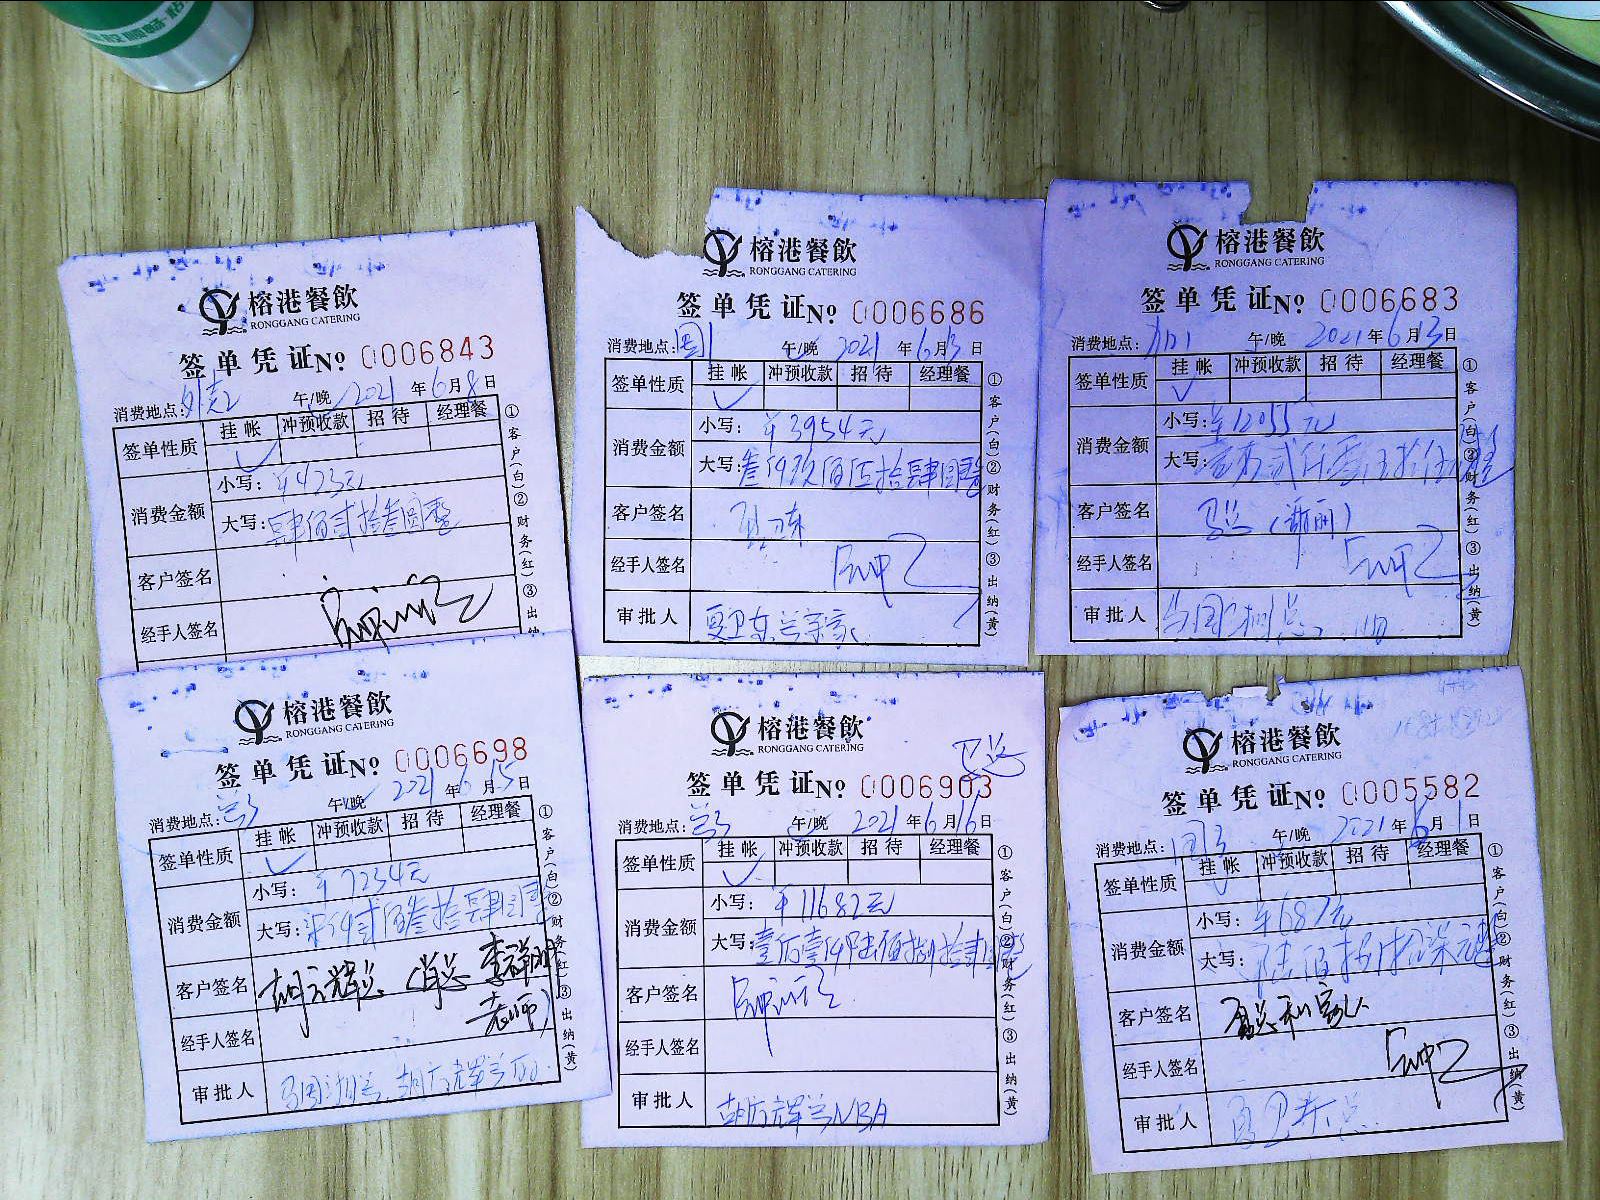 榕港餐飲
RONGGANG CATERING
签单凭证No 0006843
消费地点: 午/晚 2021年6月8日
签单性质 挂帐 冲预收款 招待 经理餐
消费金额 小写: ¥423元
大写: 肆佰贰拾叁圆整
客户签名
经手人签名
①客户(白)②财务(红)③出纳
榕港餐飲
RONGGANG CATERING
签单凭证No 0006686
消费地点: 午/晚 2021年6月13日
签单性质 挂帐 冲预收款 招待 经理餐
消费金额 小写: ¥3954元
大写: 叁仟玖佰伍拾肆圆整
客户签名
经手人签名
审批人 夏卫东
①客户(白)②财务(红)③出纳(黄)
榕港餐飲
RONGGANG CATERING
签单凭证No 0006683
消费地点: 午/晚 2021年6月13日
签单性质 挂帐 冲预收款 招待 经理餐
消费金额 小写: ¥12055元
大写: 壹万贰仟零伍拾伍元整
客户签名 马总
经手人签名
审批人
①客户(白)②财务(红)③出纳(黄)
榕港餐飲
RONGGANG CATERING
签单凭证No 0006698
消费地点: 午/晚 2021年6月15日
签单性质 挂帐 冲预收款 招待 经理餐
消费金额 小写: ¥7234元
大写: 柒仟贰佰叁拾肆圆整
客户签名 胡方辉总(肖总 李祥
老师)
经手人签名
审批人
①客户(白)②财务(红)③出纳(黄)
榕港餐飲
RONGGANG CATERING
签单凭证No 0006903
消费地点: 午/晚 2021年6月16日
签单性质 挂帐 冲预收款 招待 经理餐
消费金额 小写: ¥11682元
大写: 壹万壹仟陆佰捌拾贰圆整
客户签名
经手人签名
审批人 胡方辉总NBA
①客户(白)②财务(红)③出纳(黄)
榕港餐飲
RONGGANG CATERING
签单凭证No 0005582
消费地点: 午/晚 2021年6月1日
签单性质 挂帐 冲预收款 招待 经理餐
消费金额 小写: ¥687元
大写: 陆佰捌拾柒元整
客户签名 夏总和家人
经手人签名
审批人 夏卫东总
①客户(白)②财务(红)③出纳(黄)